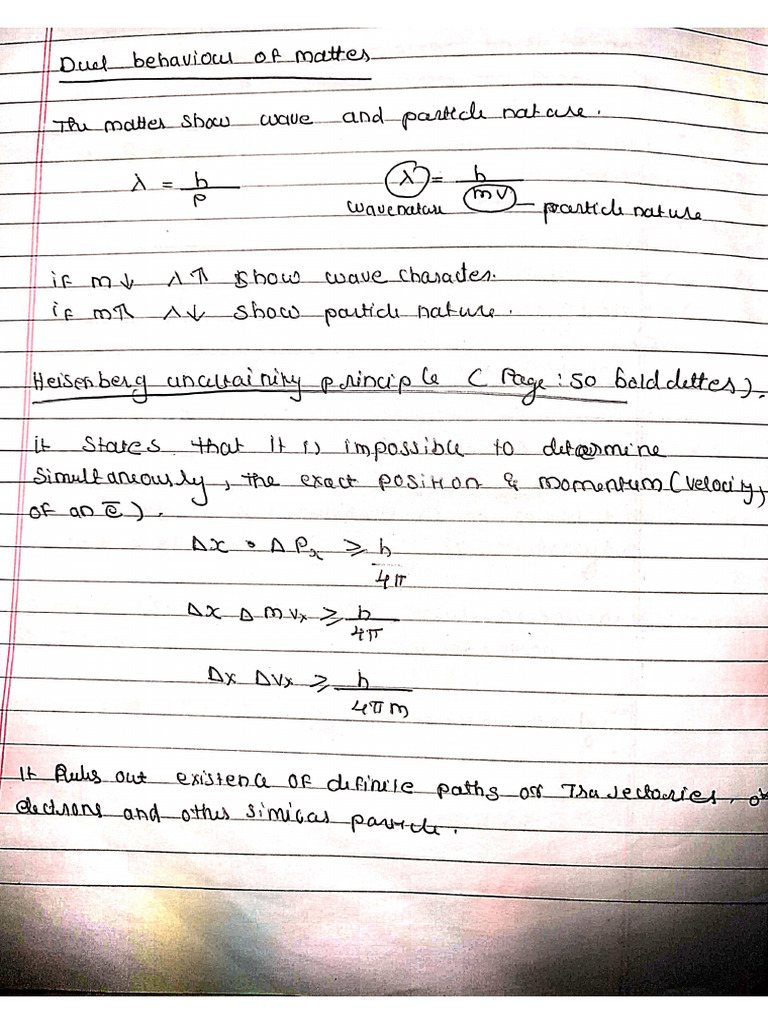 Duel behaviour of matter
The matter show wave and particle nature.
λ = h/p    λ = h/mv
wave nature — particle nature
if m↓ λ↑ show wave character.
if m↑ λ↓ show particle nature.
Heisenberg uncertainity principle ( Page: 50 bold letters).
it states that it is impossible to determine
simultaneously, the exact position & momentum (velocity)
of an e̅ ).
Δx · ΔPx ≥ h/4π
Δx Δ m vx ≥ h/4π
Δx Δvx ≥ h/4πm
It Rules out existence of definite paths or Trajectories, of
electrons and other similar particle.